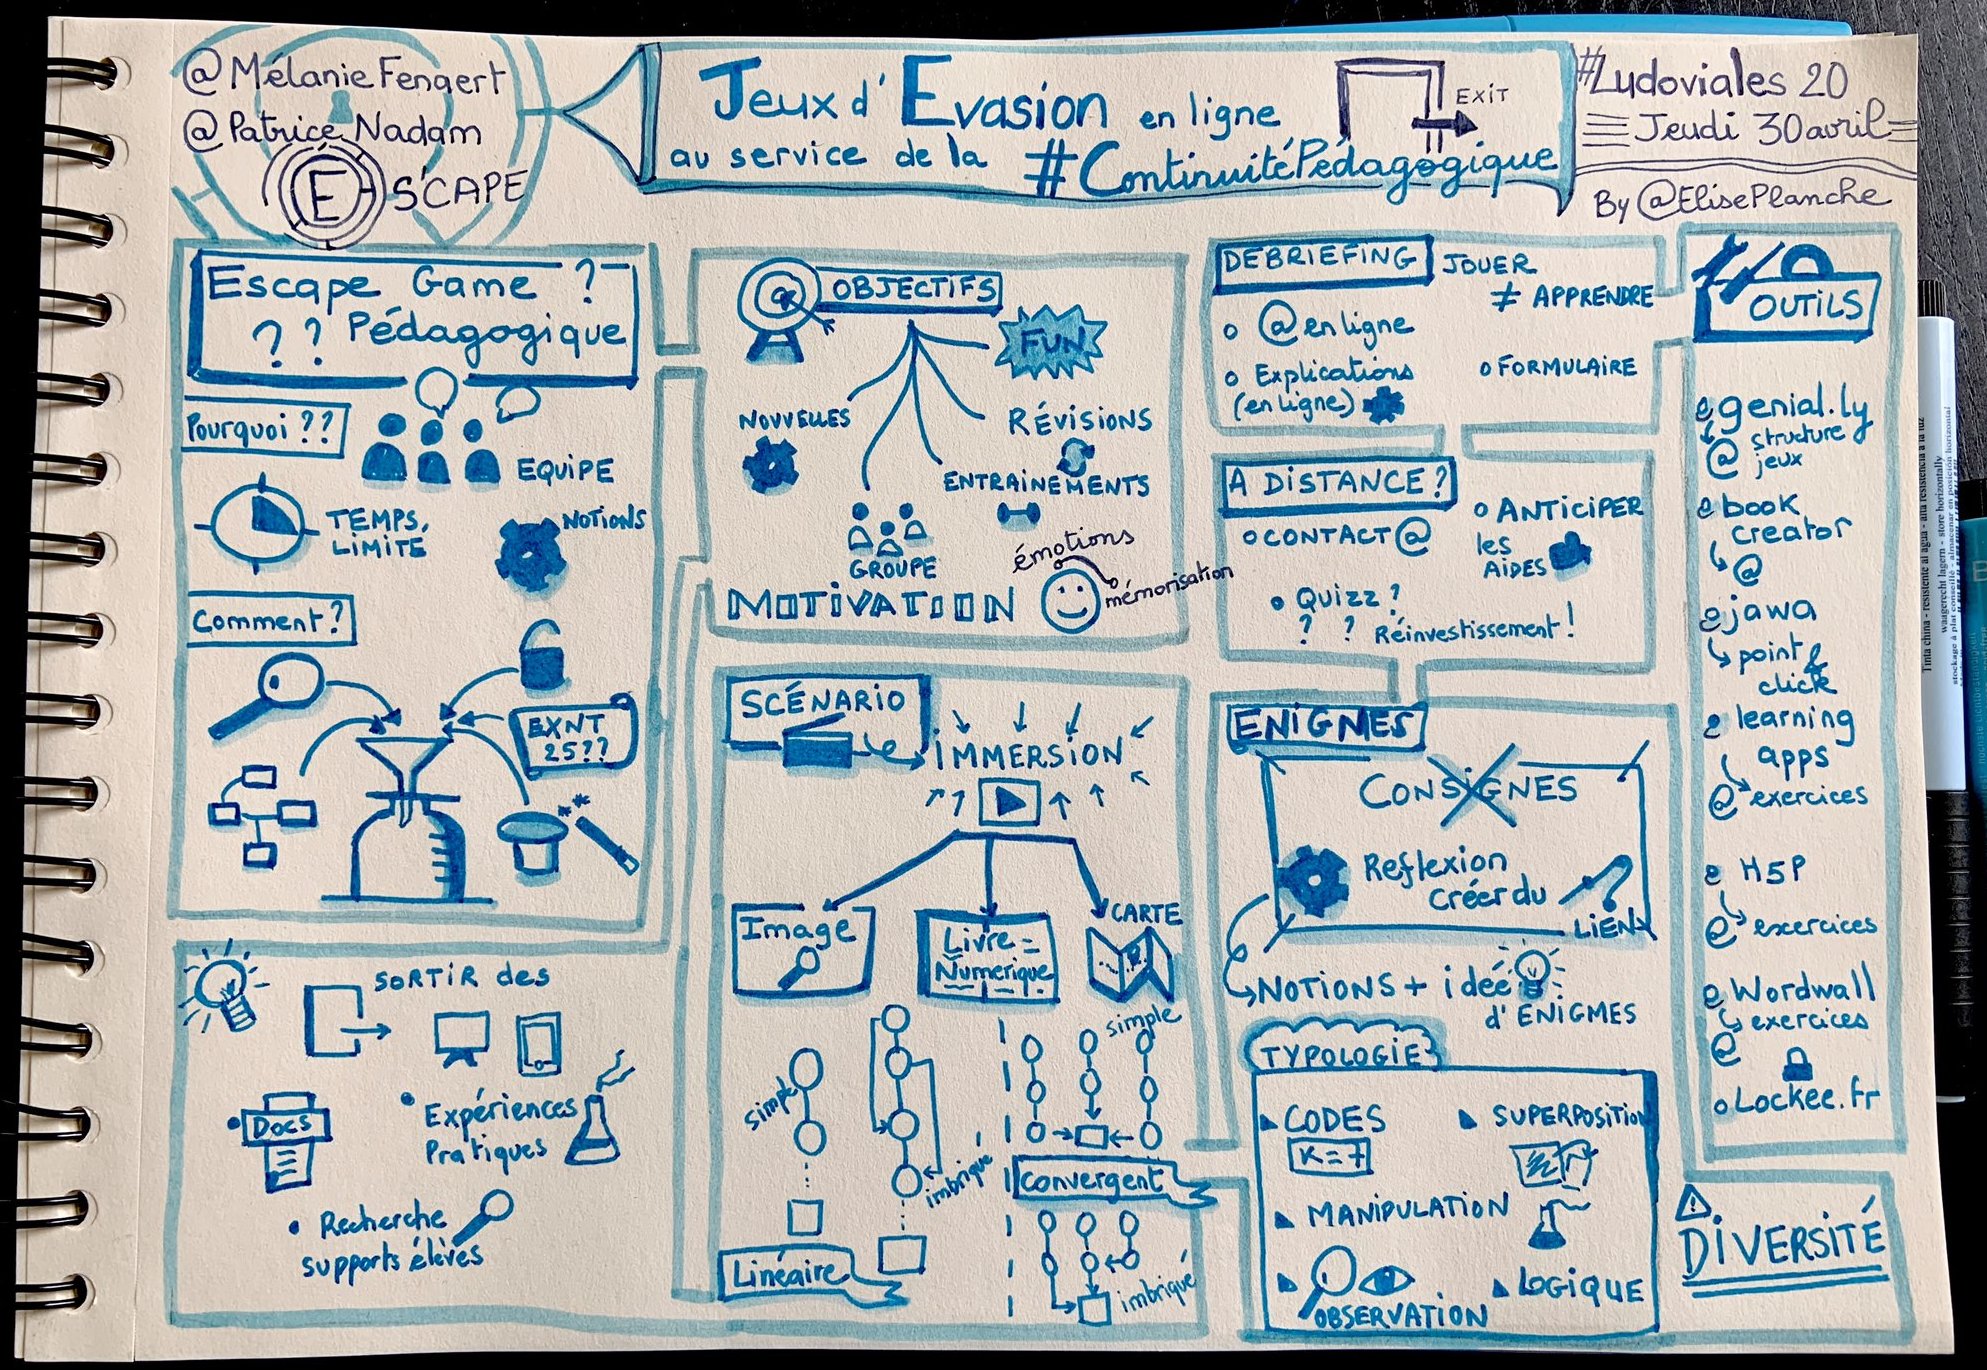 @MélanieFengert
@Patrice Nadam
E S'CAPE
Jeux d'Evasion en ligne
au service de la #ContinuitéPédagogique
EXIT
#Ludoviales 20
Jeudi 30 avril
By @ElisePlanche
Escape Game ?
? ? Pédagogique
Pourquoi ??
EQUIPE
TEMPS
LIMITE
NOTIONS
Comment ?
EXNT
25??
SORTIR des
• Docs
• Expériences
Pratiques
• Recherche
supports élèves
OBJECTIFS
FUN
NOUVELLES
RÉVISIONS
ENTRAINEMENTS
GROUPE
MOTIVATION
émotions
mémorisation
SCÉNARIO
IMMERSION
Image
Livre
Numerique
CARTE
simple
imbriqué
Linéaire
simple
convergent
imbriqué
DEBRIEFING
JOUER
≠ APPRENDRE
o @ en ligne
o Explications
(en ligne)
o FORMULAIRE
A DISTANCE ?
o CONTACT @
o ANTICIPER
les
AIDES
• Quizz ?
? ? Réinvestissement !
ENIGMES
CONSIGNES
Reflexion
créer du
LIEN
NOTIONS + idée
d'ENIGMES
TYPOLOGIE
CODES
K = 7
SUPERPOSITION
MANIPULATION
OBSERVATION
LOGIQUE
OUTILS
genial.ly
structure
@ jeux
book
creator
@
jawa
point &
click
learning
apps
@ exercices
H5P
@ excercices
Wordwall
exercices
@
o Lockee.fr
DIVERSITÉ
Tinta china - resistente al agua -
waagerecht lagern - store horizontally